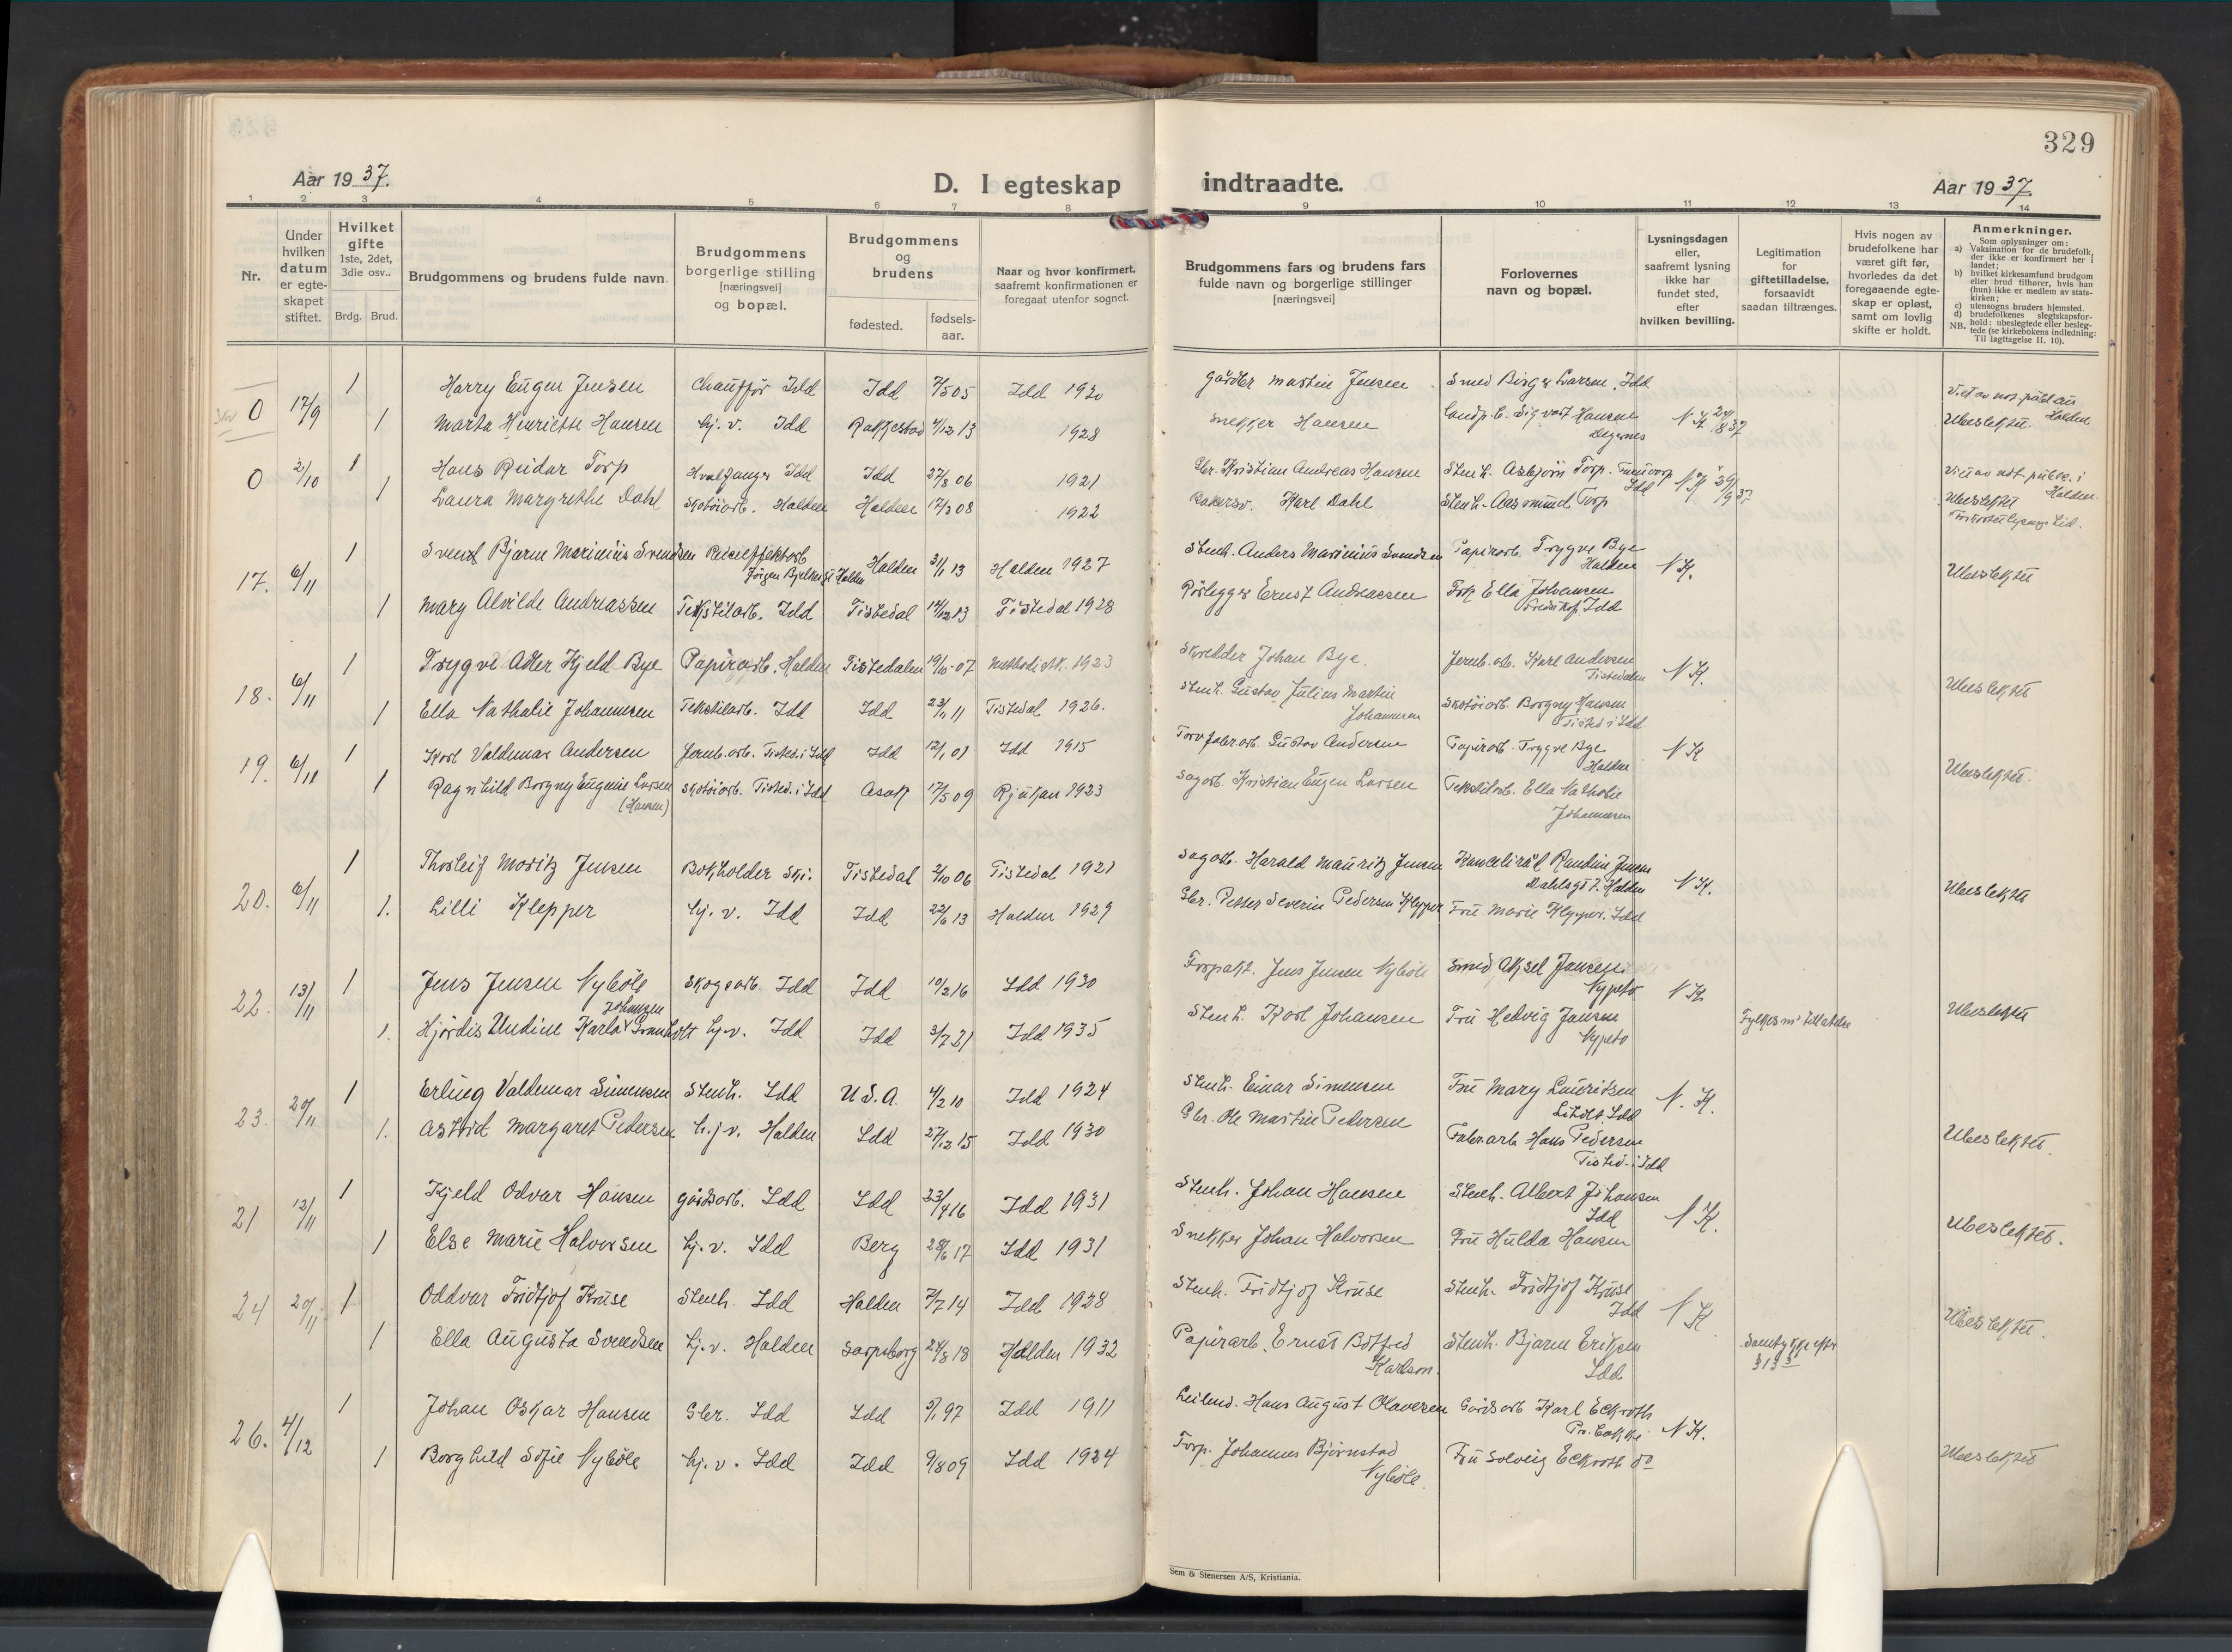 329
Aar 1937.
D. I egteskap indtraadte.
Aar 1937.
1 2 3 4 5 6 7 8 9 10 11 12 13 14
Nr.
Under hvilken datum er egte-skapet stiftet.
Hvilket gifte 1ste, 2det, 3die osv..
Brdg. Brud.
Brudgommens og brudens fulde navn.
Brudgommens borgerlige stilling [næringsvei] og bopæl.
Brudgommens og brudens
fødested. fødsels-aar.
Naar og hvor konfirmert, saafremt konfirmationen er foregaat utenfor sognet.
Brudgommens fars og brudens fars fulde navn og borgerlige stillinger [næringsvei]
Forlovernes navn og bopæl.
Lysningsdagen eller, saafremt lysning ikke har fundet sted, efter hvilken bevilling.
Legitimation for giftetilladelse, forsaavidt saadan tiltrænges.
Hvis nogen av brudefolkene har været gift før, hvorledes da det foregaaende egte-skap er opløst, samt om lovlig skifte er holdt.
Anmerkninger.
Som oplysninger om:
a) Vaksination for de brudefolk, der ikke er konfirmert her i landet;
b) hvilket kirkesamfund brudgom eller brud tilhører, hvis han (hun) ikke er medlem av stats-kirken;
c) utensogns bruders hjemsted.
d) brudefolkenes slegtskapsfor-hold: ubeslegtede eller besleg-tede (se kirkebokens indledning: Til Iagttagelse II. 10).
NB.
0 17/9 1 Harry Eugen Jensen Chauffør Idd Idd 7/5 05 Idd 1920 Gårdbr Martin Jensen Smed Birger Larsen, Idd
1 Marta Henriette Hansen hj. v. Idd Rakkestad 4/12 13 1928 Snekker Hansen Landp.b. Sigvart Hansen Degernes NK 24/8 37 Ubeslektet. Halden
0 2/10 1 Hans Reidar Torp Hvalfanger Idd Idd 27/3 06 1921 Gbr. Kristian Andreas Hansen Stenh. Asbjørn Torp. Idd NK
1 Laura Margrethe Dahl Skotøiarb. Halden Halden 17/3 08 1922 Bakersv. Karl Dahl Stenh. Aasmund Torp Ubeslektet
17. 6/11 1 Svend Bjarne Marinius Svendsen Halden 31/1 13 Halden 1927 Stenh. Anders Marinius Svendsen Papirarb. Trygve Bye Halden NK. Ubeslektet
1 Mary Alvilde Andreassen Tekstilarb. Idd Tistedal 14/12 13 Tistedal 1928 Rørlegger Ernst Andreassen Frk Ella Johansen Idd
18. 6/11 1 Trygve Adler Kjeld Bye Papirarb. Halden Tistedalen 19/10 07 Methodistk. 1923 Skredder Johan Bye. Jernb. arb. Karl Andersen Tistedalen NK. Ubeslektet
1 Ella Nathalie Johannesen Tekstilarb. Idd Idd 23/1 11 Tistedal 1926. Stenh. Gustav Julius Martin Johannesen Skotøiarb. Borgny Hansen Tisted i Idd
19. 6/11 1 Karl Valdemar Andersen Jernb. arb. Tisted. i Idd Idd 12/1 01 Idd 1915 Torvfabr.arb. Gustav Andersen Papirarb. Trygve Bye Halden NK Ubeslektet.
1 Ragnhild Borgny Eugenie Larsen (Hansen) Skotøiarb. Tisted. i Idd Asak 17/5 09 Rjukan 1923 Sagarb. Kristian Eugen Larsen Tekstilarb. Ella Nathalie Johannesen
20. 6/11 1 Thorleif Moritz Jensen Bokholder Ski. Tistedal 2/10 06 Tistedal 1921 Sagarb. Harald Mauritz Jensen Halden NK. Ubeslektet
1. Lilli Klepper hj. v. Idd Idd 22/6 13 Halden 1929 Gbr. Petter Severin Pedersen Klepper Fru Marie Klepper. Idd
22. 13/11 1 Jens Jensen Nybøle Skogsarb. Idd Idd 10/2 16 Idd 1930 Forpakt. Jens Jensen Nybøle Smed Aksel Jansen Nypetø NK. Ubeslektet
1. Hjørdis Undine Karla Granholt Johansen hj. v. Idd Idd 3/7 21 Idd 1935 Stenh. Karl Johansen Fru Hedvig Jansen Nypetø Fylkesm' tillatelse
23. 20/11 1 Erling Valdemar Simensen Stenh. Idd U.S.A. 4/2 10 Idd 1924 Stenh. Einar Simensen Fru Mary Lauritsen Idd N.K. Ubeslektet.
1. Astrid Margaret Pedersen h. j v. Halden Idd 27/12 15 Idd 1930 Gbr. Ole Martin Pedersen Fabr.arb Hans Pedersen Tisted. i Idd
21 12/11 1 Kjeld Odvar Hansen gårdsarb. Idd Idd 23/4 16 Idd 1931 Stenh. Johan Hansen Stenh. Albert Johansen Idd NK. Ubeslektet.
1 Else Marie Halvorsen hj. v. Idd Berg 28/6 17 Idd 1931 Snekker Johan Halvorsen Fru Hulda Hansen
24 20/11 1 Oddvar Fridtjof Kruse Stenh. Idd Halden 7/7 14 Idd 1928 Stenh. Fridtjof Kruse Stenh. Fridtjof Kruse Idd NK Ubeslektet.
1 Ella Augusta Svendsen hj. v. Halden Sarpsborg 24/8 18 Halden 1932 Papirarb. Ernst Botfred Karlson. Stenh. Bjarne Eriksen Idd Samtykke efter
26. 4/12 1 Johan Oskar Hansen Gbr. Idd Idd 5/1 97 Idd 1911 Leilend. Hans August Olavesen Gårdsarb Karl Eckroth NK. Ubeslektet
1 Borghild Sofie Nybøle hj. v. Idd Idd 9/8 09 Idd 1924 Forp. Johannes Bjørnstad Nybøle. Fru Solveig Eckroth do
Sem & Stenersen A/S, Kristiania.